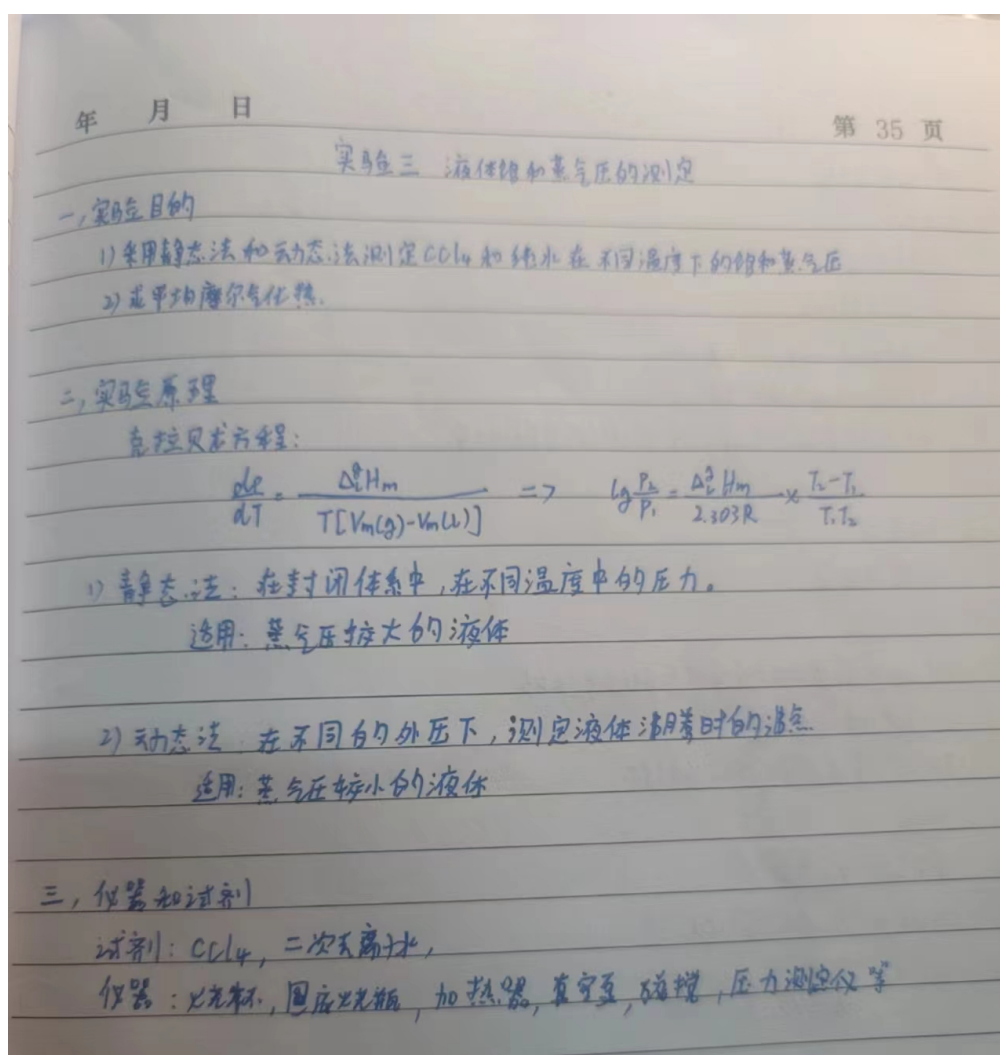 年 月 日
第 35 页
实验三 液体饱和蒸气压的测定
一, 实验目的
1) 采用静态法和动态法测定CCl4和纯水在不同温度下的饱和蒸气压
2) 求平均摩尔气化热.
二, 实验原理
克拉贝龙方程:
dp/dT = Δ_l^g H_m / T[V_m(g)-V_m(l)] => lg P2/P1 = Δ_l^g H_m / 2.303R × T2-T1 / T1T2
1) 静态法: 在封闭体系中,在不同温度中的压力。
适用: 蒸气压较大的液体
2) 动态法: 在不同的外压下,测定液体沸腾时的沸点.
适用: 蒸气压较小的液体
三, 仪器和试剂
试剂: CCl4, 二次去离子水,
仪器: 烧杯, 圆底烧瓶, 加热器, 真空泵, 磁搅, 压力测定仪 等